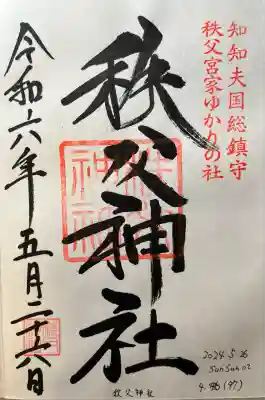 知知夫国総鎮守
秩父宮家ゆかりの社
秩父神社
令和六年五月二十六日
2024.5.26
秩父神社